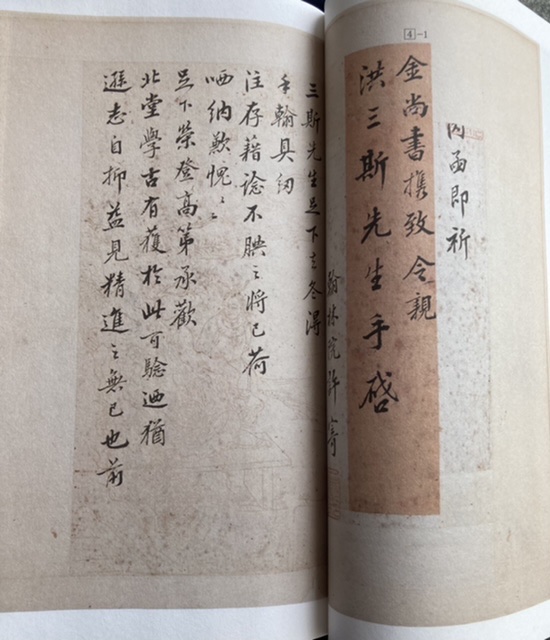 4-1
內函即祈
金尚書携致 令親
洪三斯先生手啓
翰林院許寄
三斯先生足下去冬得
手翰具紉
注存藉諗不腆之將已荷
哂納歉愧〻
足下榮登高第承歡
北堂學古有獲於此可驗迺猶
遜志自抑益見精進之無已也前